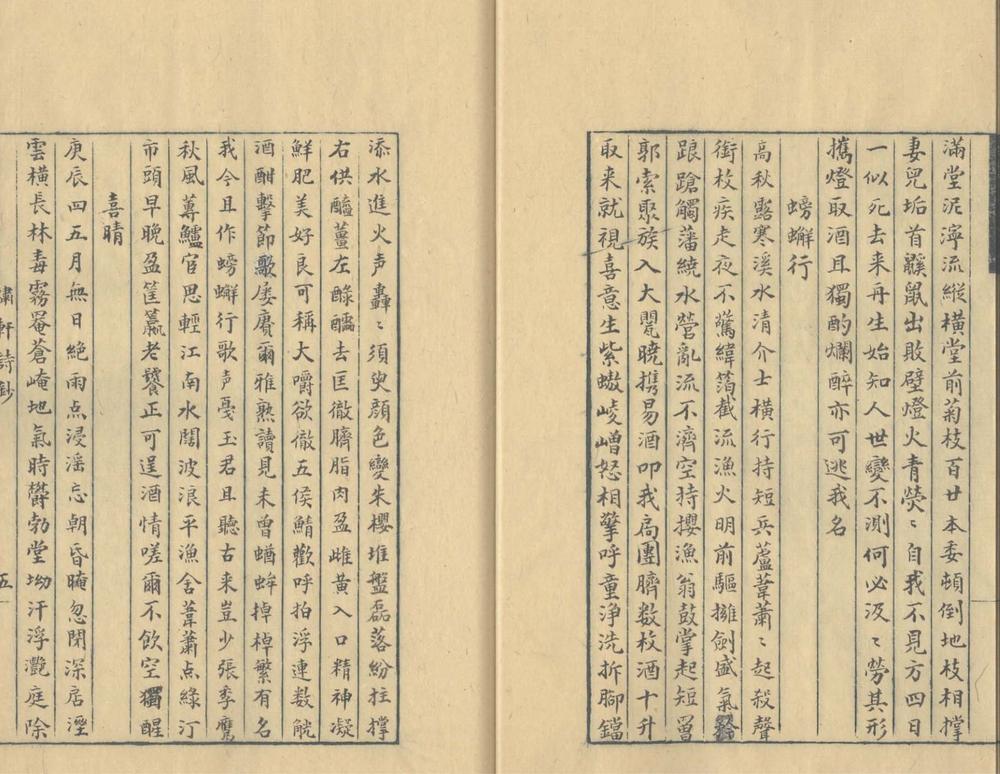 滿堂泥濘流縱橫堂前菊枝百廿本委頓倒地枝相撐
妻兒垢首鼷鼠出敗壁燈火青熒〻自我不見方四日
一似死去来再生始知人世變不測何必汲〻勞其形
攜燈取酒且獨酌爛醉亦可逃我名
螃蠏行
高秋露寒溪水清介士橫行持短兵蘆葦蕭〻起殺聲
銜枚疾走夜不驚緯蕭截流漁火明前驅擁劍盛氣矜
踉蹌觸藩繞水營亂流不濟空持攖漁翁鼓掌起短罾
郭索聚族入大甖曉携易酒叩我扃團臍数枚酒十升
取来就視喜意生紫螯崚嶒怒相擎呼童淨洗拆腳鐺
添水進火声轟〻須臾顔色變朱櫻堆盤磊落紛拄撑
右供醢薑左醁醽去匡徹臍脂肉盈雌黃入口精神凝
鮮肥美好良可稱大嚼欲徹五侯鯖歡呼拍浮連数觥
酒酣擊節歌屡賡爾雅熟讀見未曾蝤蛑掉棹繁有名
我今且作螃蠏行歌声戛玉君且聽古来豈少張季鷹
秋風蓴鱸官思輕江南水闊波浪平漁舍葦蕭点綠汀
市頭早晚盈筐籯老饕正可逞酒情嗟爾不飲空獨醒
喜晴
庚辰四五月無日絶雨点浸淫忘朝昏晻忽閉深居溼
雲橫長林毒霧罨蒼崦地氣時鬱勃堂坳汗浮灔庭除
嘯軒詩鈔
五